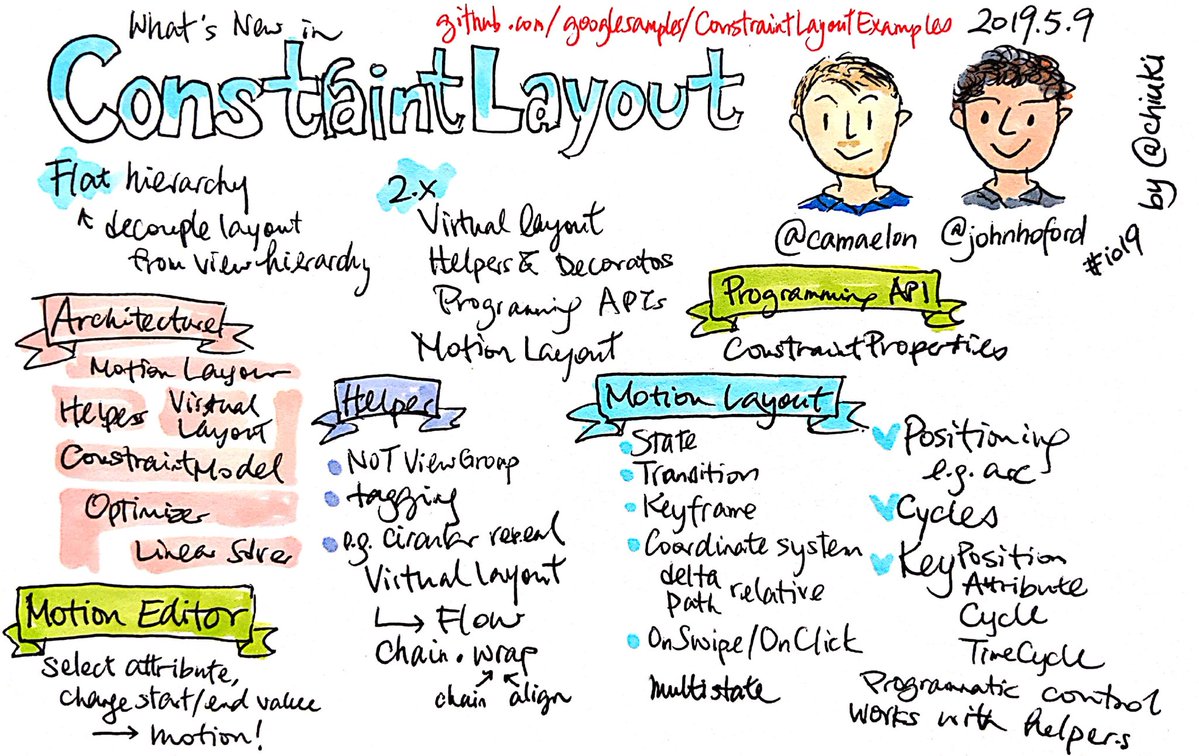 What's New in
ConstraintLayout
github.com/googlesamples/ConstraintLayoutExamples
2019.5.9
by @chiuki
#io19
@camaelon
@johnhoford
Flat hierarchy
decouple layout
from view hierarchy
2.x
Virtual layout
Helpers & Decoratos
Programing APIs
Motion Layout
Programming API
ConstraintProperties
Architecture
Motion Layout
Helpers
Virtual
Layout
ConstraintModel
Optimizer
Linear Solver
Motion Editor
select attribute,
change start/end value
→ motion!
Helper
• NOT ViewGroup
• tagging
• e.g. circular reveal
Virtual layout
↳ Flow
Chain. wrap
chain align
Motion Layout
• State
• Transition
• Keyframe
• Coordinate system
delta
path relative
• OnSwipe/OnClick
multistate
Positioning
e.g. arc
Cycles
Key Position
Attribute
Cycle
TimeCycle
Programmatic control
works with helpers